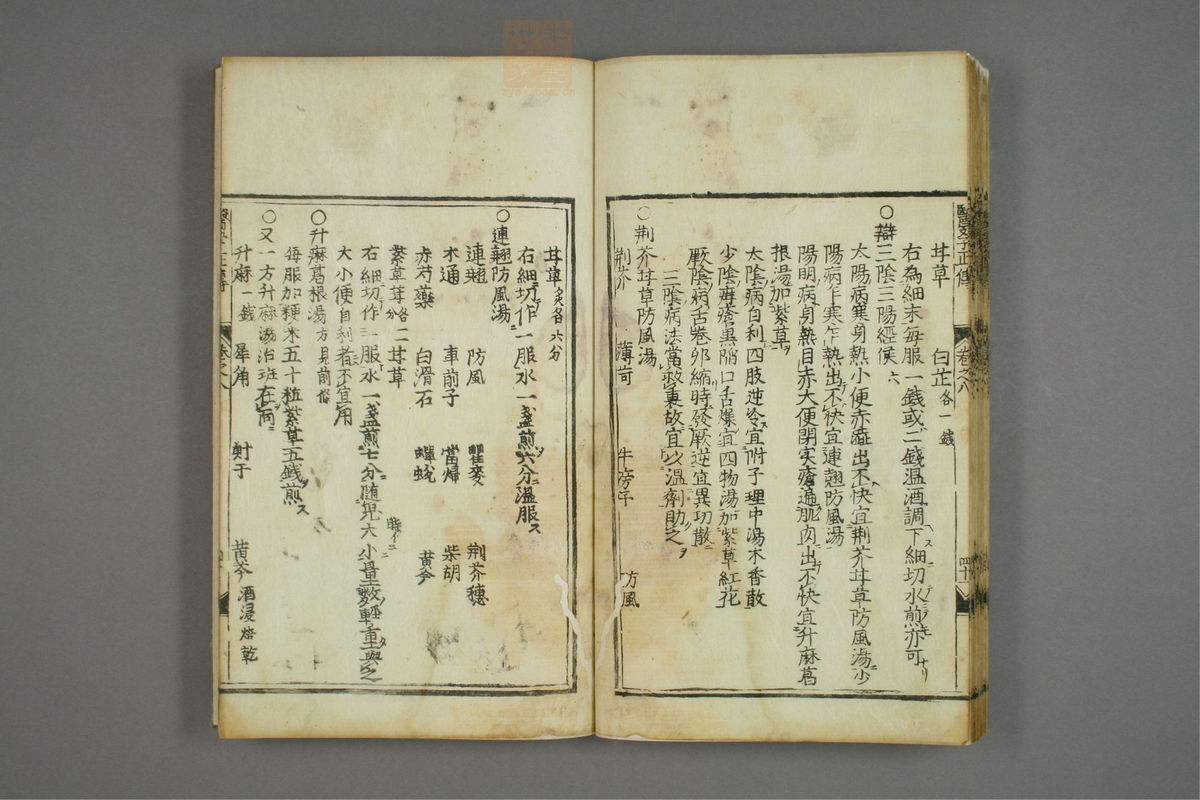 醫學正傳 卷之八 四十
甘草 白芷各一錢
右為細末每服一錢或二錢温酒調下細切水煎亦可ナリ
○辯三陰三陽經候六
太陽病寒身熱小便赤澁出不快宜荆芥甘草防風湯少
陽病乍寒乍熱出不快宜連翹防風湯
陽明病身熱目赤大便閉实瘡遍肌肉出不快宜升麻葛
根湯加紫草
太陰病自利四肢逆冷宜附子理中湯木香散
少陰病瘡黒陷口舌燥宜四物湯加紫草紅花
厥陰病舌卷卵縮時發厥逆宜異功散
三陰病法當救裏故宜以温劑助之
○荆芥甘草防風湯
荆芥 薄苛 牛蒡子 防風
甘草炙各六分
右細切作一服水一盞煎六分温服ス
○連翹防風湯
連翹 防風 瞿麥 荆芥穗
木通 車前子 當歸 柴胡
赤芍藥 白滑石 蟬蛻 黄芩
紫草茸各二分 甘草
右細切作一服水一盞煎七分随児大小量数輕重與之
大小便自利者不宜用
○升麻葛根湯方見前
每服加粳米五十粒紫草五錢煎ス
○又一方升麻湯治斑在面
升麻一錢 犀角 射干 黄芩酒浸焙乾